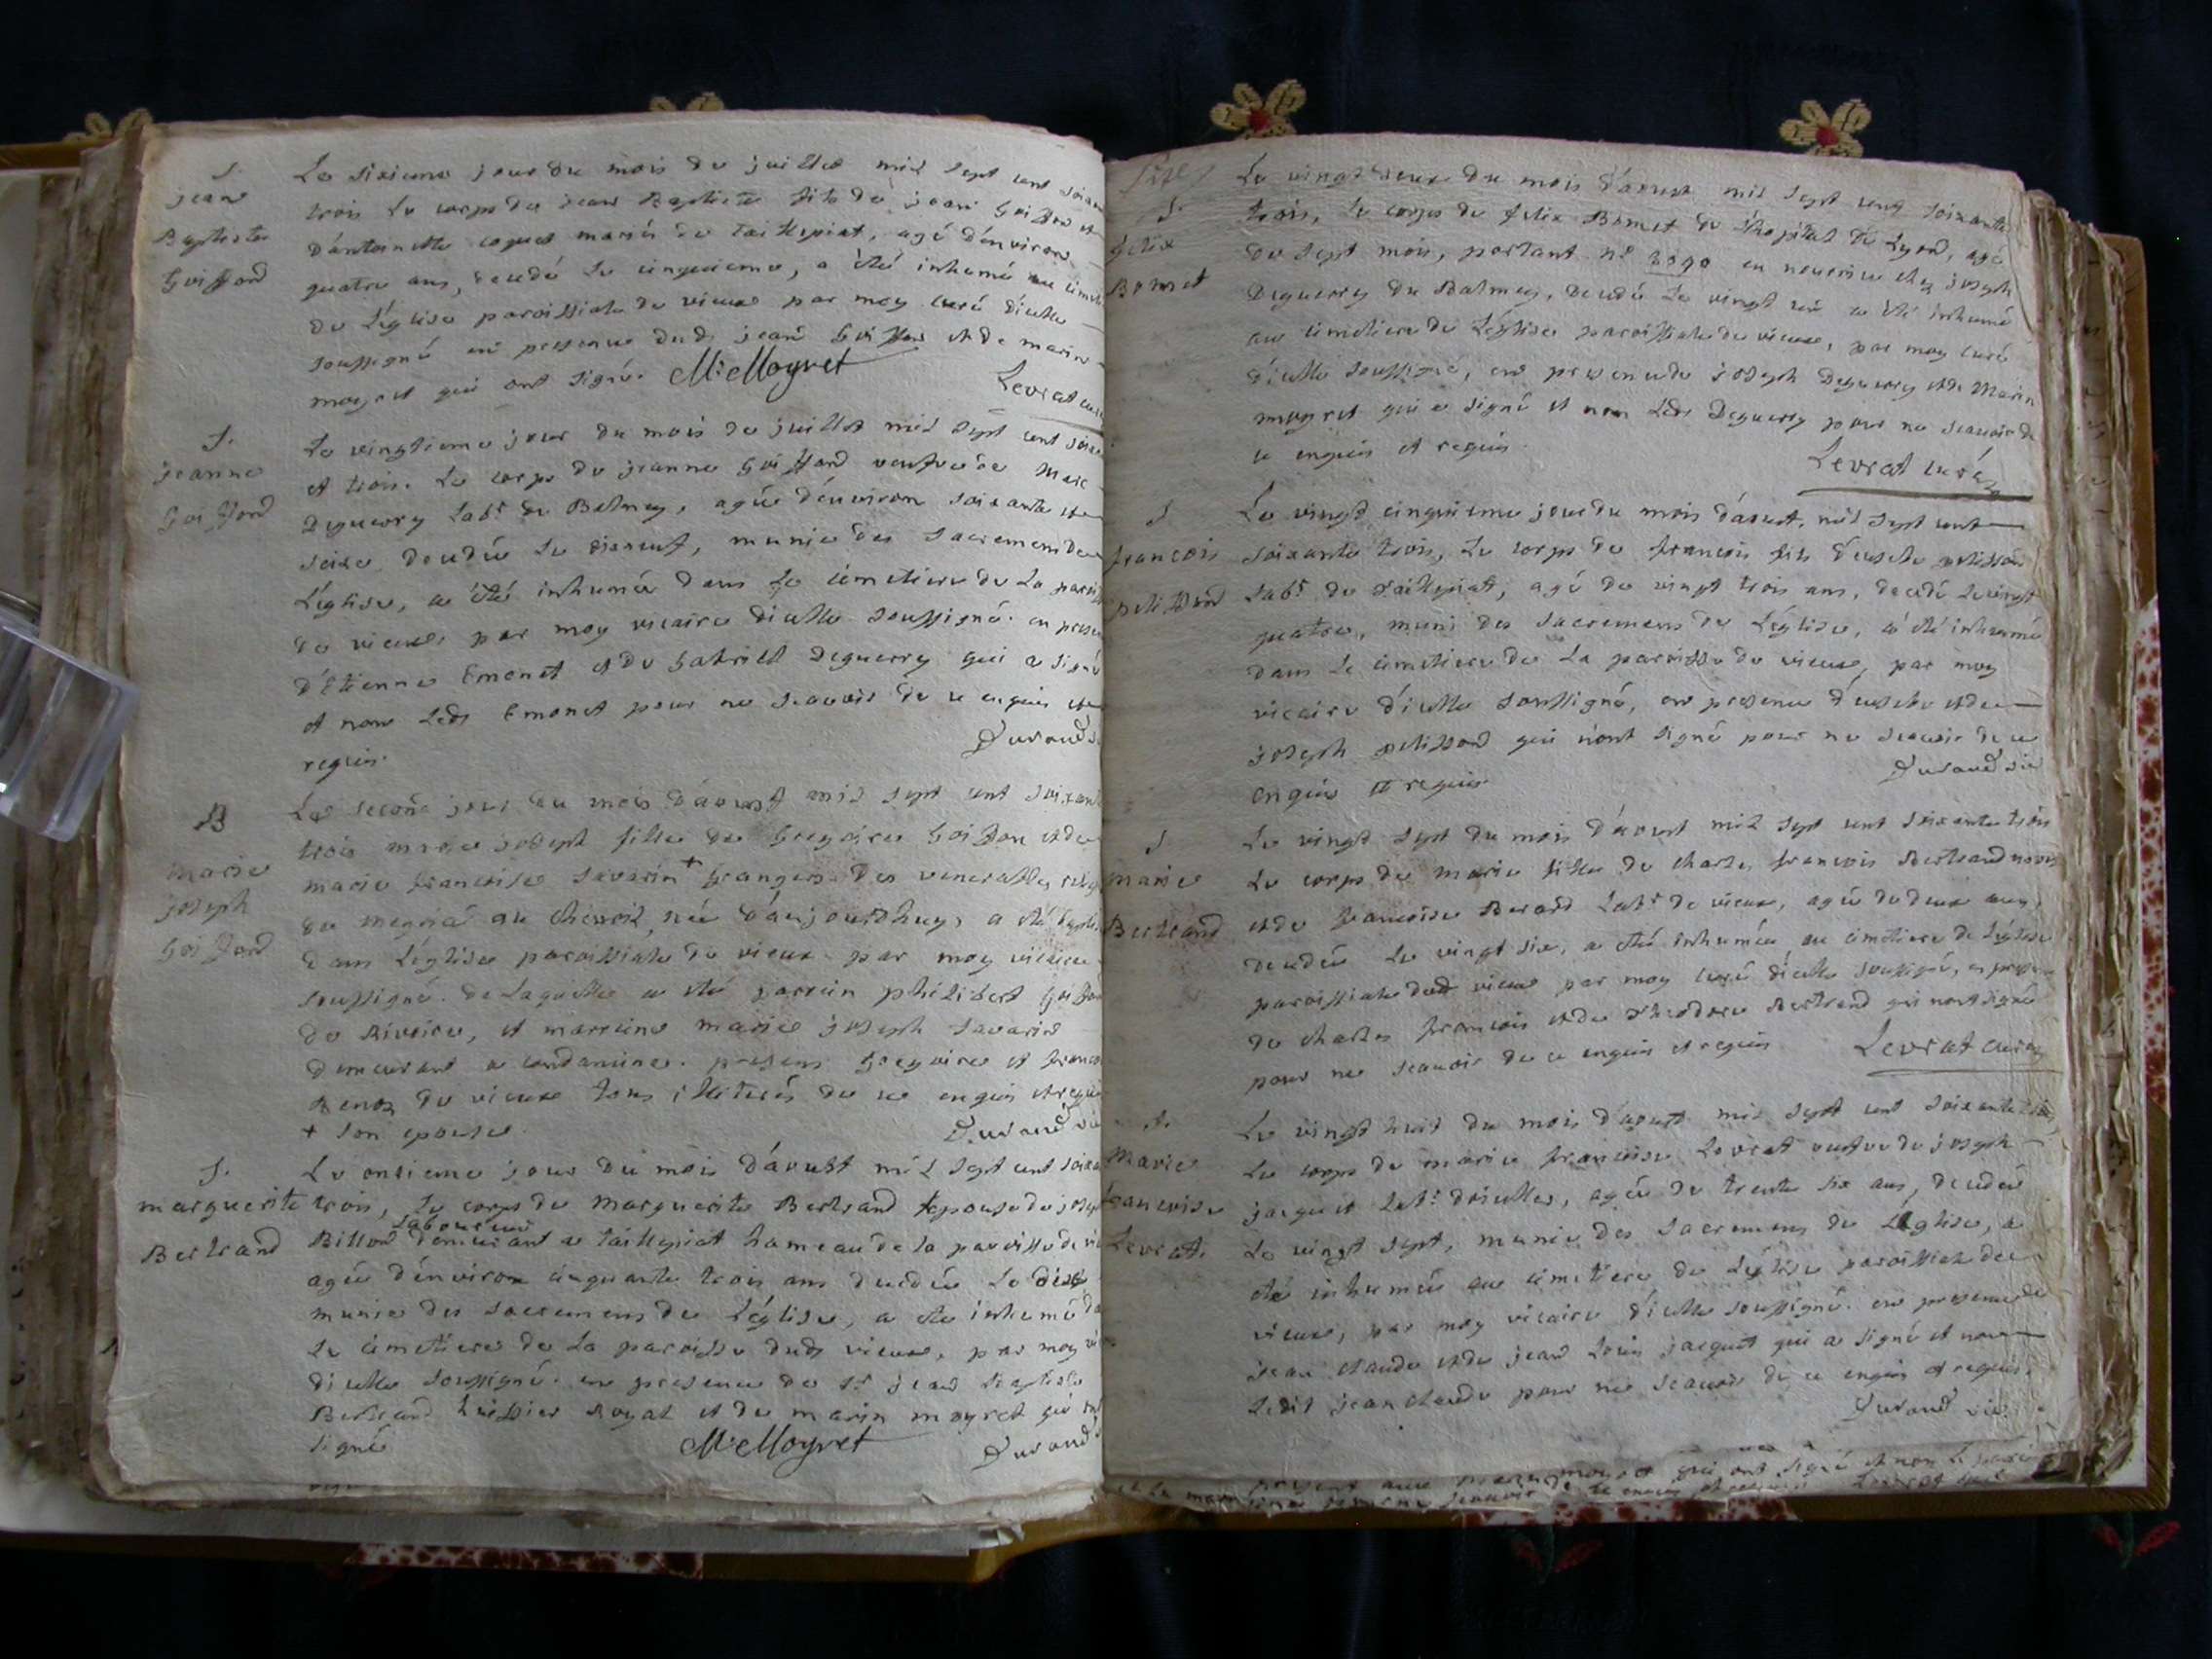 S.
jean
Baptiste
Goiffond
Le sixieme jour du mois de juillet mil sept cent soixan
trois Le corps de jean Baptiste fils de jean Goiffon et
d'antoinette coquet mariés de taillepiat, agé d'environ
quatre ans, decedé le cinquieme, a été inhumé au cimet
de L'église paroissiale de vieux par moy curé d'icelle
soussigné en presence dudt jean Goiffon et de marin
moyret qui ont signé. M: Moyret
Levrat curé
S.
jeanne
Goiffond
Le vingtieme jour du mois de juillet mil sept cent soixa
et trois. Le corps de jeanne Goiffond veufve de Marc
Deguerry Labr de Belmey, agée d'environ soixante et
seise, decedée le dixneuf, munie des Sacremens de
L'église, a été inhumée dans Le cimetiere de La paroiss
de vieux par moy vicaire d'icelle soussigné. en presen
d'Etienne Emonet et de Gabriel Deguerry qui a signé
et non Ledt Emonet pour ne sçavoir de ce enquis et
requis.
Durand
B
Marie
joseph
Goiffond
Le second jour du mois d'aoust mil sept cent soixan
trois marie joseph fille de Gregoire Goiffon et de
marie françoise Savarin + Grangers des venerables
de au née d'aujourd'huy, a été
dans L'église paroissiale de vieux par moy vicaire
soussigné. de Laquelle a été parrein philibert Goiffon
de Riviere, et marreine marie joseph Savarin
demeurant a condamine. presens Gregoire et franc
de vieux tous illiterés de ce enquis et requis
+ son epouse.
Durand vic
S.
marguerite
Bertrand
Le onsieme jour du mois d'aoust mil sept cent soixa
trois, Le corps de Marguerite Bertrand epouse de josep
Laboureur
Billon demeurant a taillepiat hameau de la paroisse de vie
agée d'environ cinquante trois ans decedée Le dix
munie des sacremens de L'église, a été inhumé da
Le cimetiere de La paroisse dudt vieux, par moy vi
d'icelle soussigné. en presence de Sr jean Baptiste
Bertrand huissier Royal et de marin moyret qui ont
signé
M: Moyret
Durand
S.
felix
Bomet
Le vingt deux du mois d'aoust mil sept cent soixante
trois, Le corps de felix Bomet de L'hopital de Lyon, agé
de sept mois, portant n° 2090 en nourrice chez joseph
Deguerry du Balmey, decedé Le vingt un a été inhumé
au cimetiere de L'église paroissiale de vieux, par moy curé
d'icelle soussigné, en presence de joseph Deguerry et de Marin
moyret qui a signé et non Ledt Deguerry pour ne sçavoir de
ce enquis et requis
Levrat curé
S
françois
pelissond
Le vingt cinquieme jour du mois d'aoust, mil sept cent
soixante trois, Le corps de françois fils d'eusebe pelisson
Labr de taillepiat, agé de vingt trois ans, decedé le vingt
quatre, muni des sacremens de L'église, a été inhumé
dans Le cimetiere de La paroisse de vieux, par moy
vicaire d'icelle soussigné, en presence d'eusebe et de
joseph pelissond qui n'ont signé pour ne sçavoir de ce
enquis et requis
Durand vic
S
marie
Bertrand
Le vingt sept du mois d'aoust mil sept cent soixante trois
Le corps de marie fille de charles françois Bertrand
et de françoise Berard Labr de vieux, agée de deux ans,
decedée Le vingt six, a été inhumée au cimetiere de L'église
paroissiale dudt vieux par moy curé d'icelle soussigné, en presence
de charles françois et de theodore Bertrand qui n'ont signé
pour ne sçavoir de ce enquis et requis
Levrat curé
S.
Marie
françoise
Levrat.
Le vingt huit du mois d'aoust mil sept cent soixante trois,
Le corps de marie françoise Levrat veufve de joseph
jacquet Labr d'oisselles, agée de trente six ans, decedée
Le vingt sept, munie des sacremens de L'église, a
été inhumée au cimetiere de L'église paroissiale de
vieux, par moy vicaire d'icelle soussigné. en presence de
jean claude et de jean Louis jacquet qui a signé et non
Ledit jean claude pour ne sçavoir de ce enquis et requis.
Durand vic.